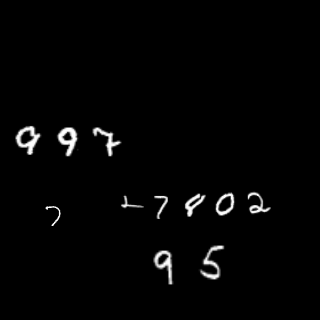 997
7 +7802
95